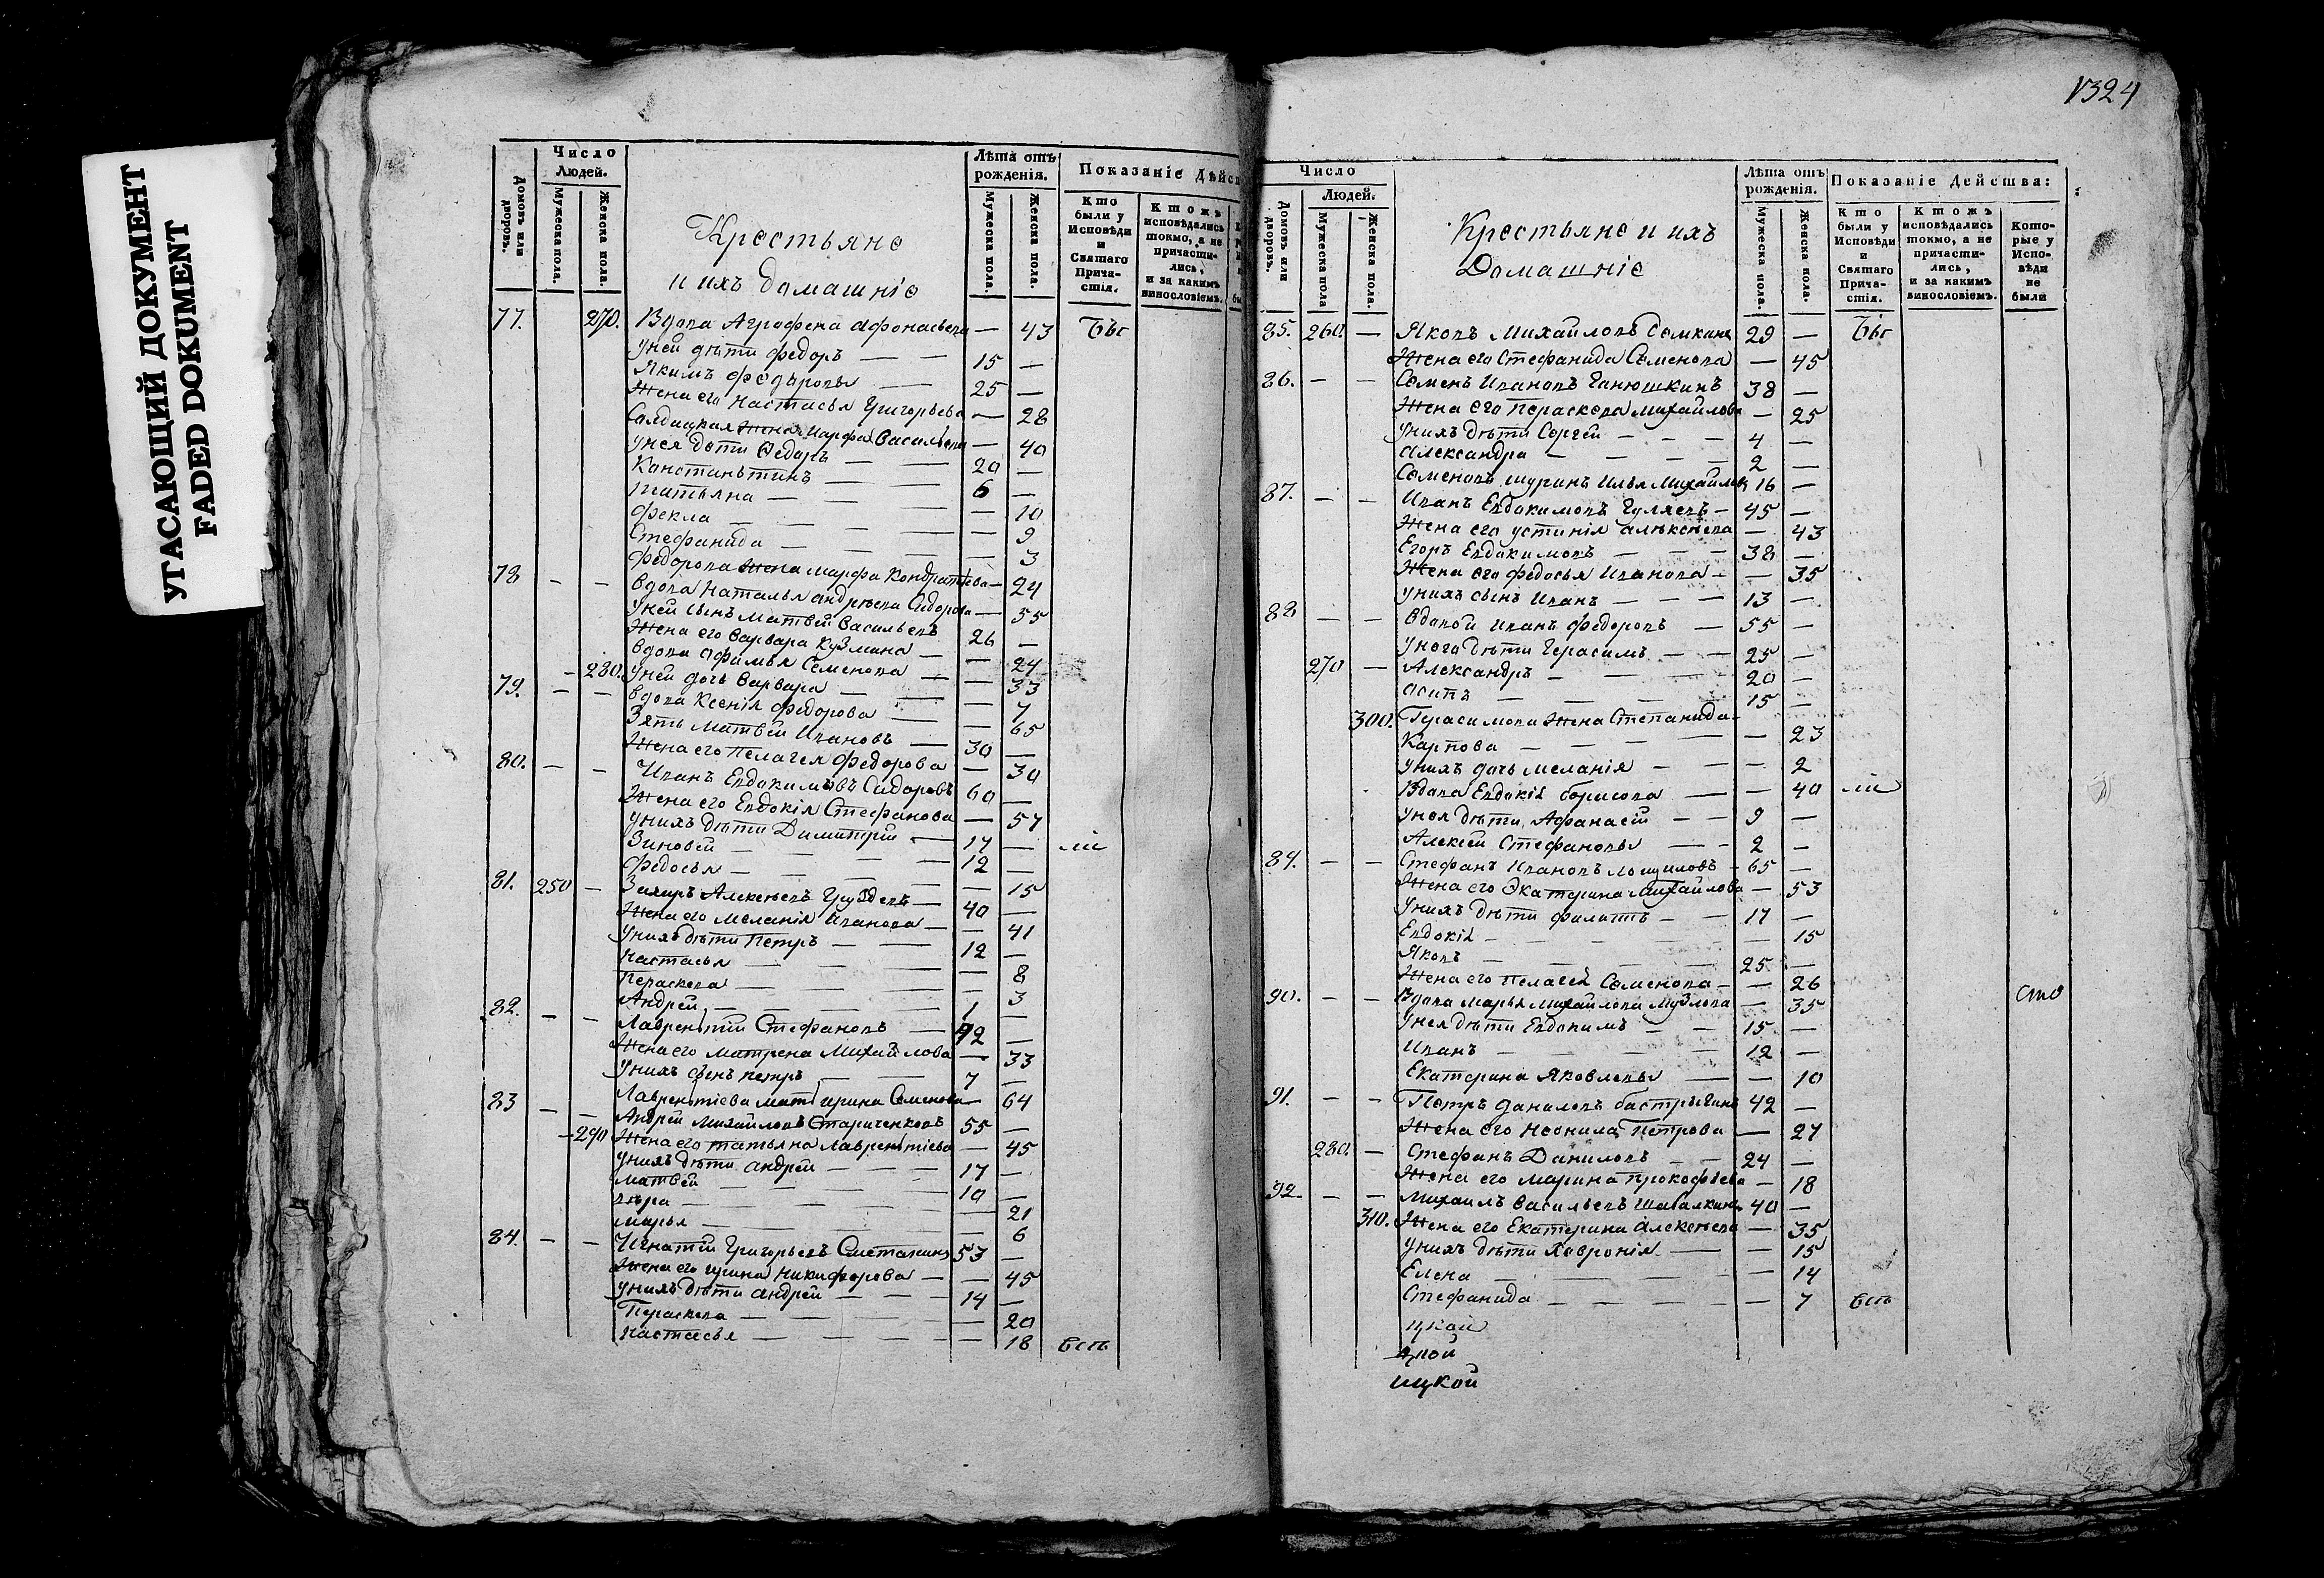 УТАСАЮЩИЙ ДОКУМЕНТ
FADED DOKUMENT
1324
Число
Людей.
Домовъ или дворовъ.
Мужеска пола.
Женска пола.
Крестьяне
и ихъ домашніе
Лѣта отъ
рожденія.
Мужеска пола.
Женска пола.
Показаніе Дѣйс
Кто
были у
Исповѣди
и
Святаго
Прича-
стія.
Ктожъ
исповѣдались
токмо, а не
причасти-
лись,
и за какимъ
винословіемъ.
77. 270. Вдова Аграфена Афонасьева — 43 Бы
у ней дѣти Федоръ — — 15 —
Якимъ Федоровы — 25 —
Жена его Настасья Григорьева — 28
Салдацкая Жена Марфа Васильева — 40
у нея дѣти Федоръ — — 20 —
Констаньтинъ — — 6 —
Татьяна — — — 10
Фекла — — — 9
Стефанида — — — 3
Федорова Жена Марфа Кондратьева — 24
78 - - Вдова Наталья Андреева Сидорова — 55
у ней сынъ Матвей Васильевъ 26 —
Жена его Варвара Кузмина — — 24
Вдова Афимья Семенова — — 33
- 280. у ней дочь Варвара — — 7
79. - - Вдова Ксенія Федорова — — 65
Зять Матвей Ивановъ — 30 —
Жена его Пелагея Федорова — 30
80. - - Иванъ Евдокимовъ Сидоровъ 60 —
Жена его Евдокія Стефанова — 57
у нихъ дѣти Димитрій — 17 — ли
Зиновей — — — 12 —
Федосья — — — — 15
81. 250 - Захаръ Алексеевъ Груздевъ — 40 —
Жена его Меланія Иванова — — 41
у нихъ дѣти Петръ — — 12 —
Настасья — — — — 8
Пераскева — — — — 3
Андрей — — — 1 —
82. - - Лаврентій Стефановъ — 42 —
Жена его Матрена Михайлова — 33
у нихъ сынъ Петръ — — 7 —
Лаврентіева мать Ирина Семенова — 64
83 - - Андрей Михайловъ Стариченковъ 55 —
- 290 Жена его Татьяна Лаврентіева — 45
у нихъ дѣти Андрей — — 17 —
Матвей — — — 10 —
Вѣра — — — — 21
Марья — — — — 6
84. - - Игнатій Григорьевъ Сметанинъ 53 —
Жена его Ирина Никифорова — — 45
у нихъ дѣти Андрей — — 14 —
Пераскева — — — — 20
Настасья — — — — 18 Есть
Число
Людей.
Домовъ или дворовъ.
Мужеска пола
Женска пола.
Крестьяне и ихъ
Домашніе
Лѣта отъ
рожденія.
Мужеска пола.
Женска пола.
Показаніе Действа:
Кто
были у
Исповѣди
и
Святаго
Прича-
стія.
Ктожъ
исповѣдались
токмо, а не
причасти-
лись,
и за какимъ
винословіемъ.
Кото-
рые у
Испо-
вѣди
не
были
85. 260. — Яковъ Михайловъ Семкинъ 29 — Бы
Жена его Стефанида Семенова — 45
86. - - Семенъ Ивановъ Ганюшкинъ 38 —
Жена его Пераскева Михайлова — 25
у нихъ дѣти Сергей — — 4 —
Александра — — — 2 —
Семеновъ шуринъ Илья Михайловъ 16 —
87. - - Иванъ Евдокимовъ Гуляевъ — 45 —
Жена его Устинія Алексеева — 43
Егоръ Евдокимовъ — — 38 —
Жена его Федосья Иванова — — 35
у нихъ сынъ Иванъ — — 13 —
88 - - Вдовой Иванъ Федоровъ — 55 —
у него дѣти Герасимъ — — 25 —
270 — Александръ — — — 20 —
Осипъ — — — 15 —
300. Герасимова Жена Степанида
Карпова — — — — 23
у нихъ дочь Меланія — — — 2
Вдова Евдокія Борисова — — 40 ли
у нея дѣти Афанасій — — 9 —
Алексей Стефановы — — 2 —
89. - - Стефанъ Ивановъ Мошиловъ — 65 —
Жена его Экатерина Михайлова — 53
у нихъ дѣти Филатъ — — 17 —
Евдокія — — — — 15
Яковъ — — — 25 —
Жена его Пелагея Семенова — — 26
90. - - Вдова Марья Михайлова Музлова — 35 сто
у нея дѣти Евдокимъ — — 15 —
Иванъ — — — 12 —
Екатерина Яковлевы — — 10
91. - - Петръ Даниловъ Бастрыгинъ 42 —
Жена его Неонила Петрова — 27
280. — Стефанъ Даниловъ — — 24 —
Жена его Марина Прокофьева — 18
92. - - Михаилъ Васильевъ Шабалкинъ 40 —
310. Жена его Екатерина Алексеева — 35
у нихъ дѣти Хавронія — — 15
Елена — — — — 14
Стефанида — — — — 7 Есть
цкой
цкой